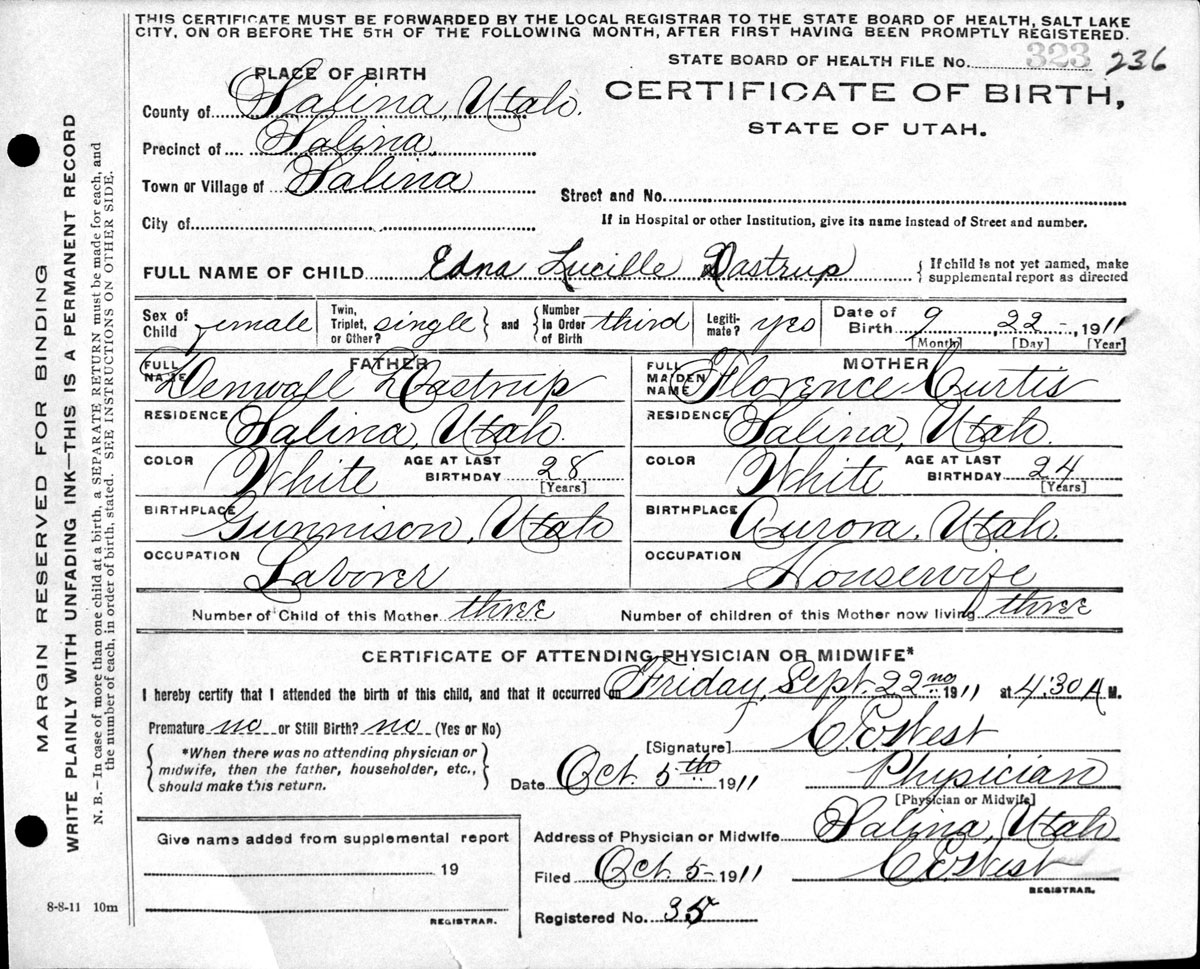 THIS CERTIFICATE MUST BE FORWARDED BY THE LOCAL REGISTRAR TO THE STATE BOARD OF HEALTH, SALT LAKE
CITY, ON OR BEFORE THE 5TH OF THE FOLLOWING MONTH, AFTER FIRST HAVING BEEN PROMPTLY REGISTERED.
STATE BOARD OF HEALTH FILE No. 323 236
PLACE OF BIRTH
CERTIFICATE OF BIRTH,
STATE OF UTAH.
County of Salina, Utah.
Precinct of Salina,
Town or Village of Salina
Street and No.
City of
If in Hospital or other Institution, give its name instead of Street and number.
FULL NAME OF CHILD Edna Lucille Dastrup { If child is not yet named, make
supplemental report as directed
Sex of Child female Twin, Triplet, or Other? single } and { Number in Order of Birth third Legiti-mate? yes Date of Birth 9 22-, 1911
[Month] [Day] [Year]
FATHER MOTHER
FULL NAME Denwall Dastrup FULL MAIDEN NAME Florence Curtis
RESIDENCE Salina, Utah. RESIDENCE Salina, Utah.
COLOR White AGE AT LAST BIRTHDAY 28 [Years] COLOR White AGE AT LAST BIRTHDAY 24 [Years]
BIRTHPLACE Gunnison, Utah BIRTHPLACE Aurora, Utah.
OCCUPATION Laborer OCCUPATION Housewife
Number of Child of this Mother three Number of children of this Mother now living three
CERTIFICATE OF ATTENDING PHYSICIAN OR MIDWIFE*
I hereby certify that I attended the birth of this child, and that it occurred on Friday, Sept. 22nd 1911 at 4.30 A M.
Premature no or Still Birth? no (Yes or No)
{ *When there was no attending physician or
midwife, then the father, householder, etc.,
should make this return. }
[Signature] C. E. West
Date Oct. 5th 1911 Physician
[Physician or Midwife]
Address of Physician or Midwife Salina, Utah
Filed Oct. 5- 1911 C. E. West
REGISTRAR.
Registered No. 35
Give name added from supplemental report
19
REGISTRAR.
8-8-11 10m
MARGIN RESERVED FOR BINDING
WRITE PLAINLY WITH UNFADING INK—THIS IS A PERMANENT RECORD
N. B.—In case of more than one child at a birth, a SEPARATE RETURN must be made for each, and
the number of each, in order of birth, stated. SEE INSTRUCTIONS ON OTHER SIDE.